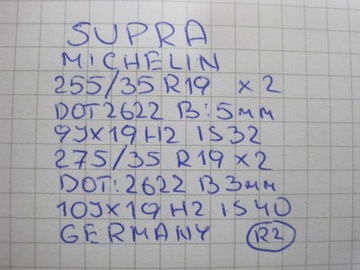 SUPRA
MICHELIN
255/35 R19 x2
DOT 2622 B:5мм
9Jx19 H2 IS32
275/35 R19 x2
DOT: 2622 B3мм
10Jx19 H2 IS40
GERMANY R2